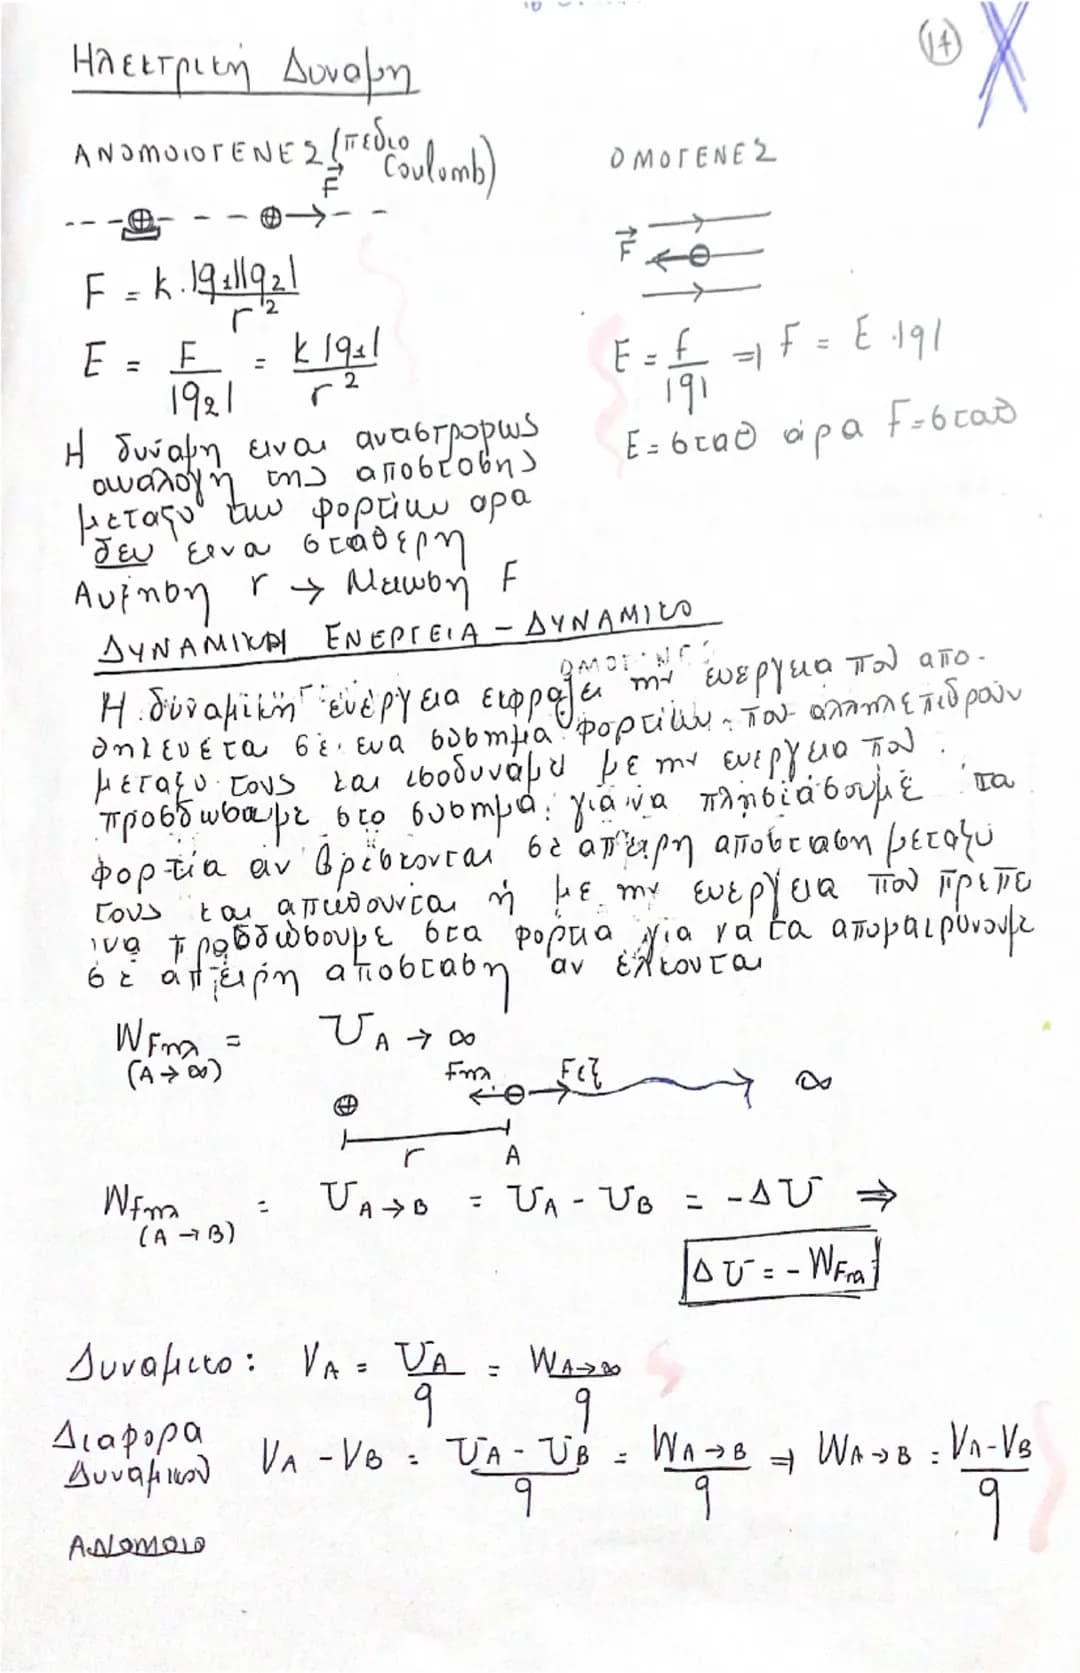 (17)
Ηλεκτρική Δυναμη
ΑΝΟΜΟΙΟΓΕΝΕΣ (πεδιο Coulomb)
F
F = k.|q1||q2| / r²
E = F / |q2| = k |q1| / r²
Η δυναμη ειναι αναστροφως
αναλογη της αποστασης
μεταξυ των φορτίων αρα
δεν εινα σταθερη
Αυξηση r → Μειωση F
ΟΜΟΓΕΝΕΣ
F
E = F / |q| => F = E.|q|
E = σταθ άρα F = σταθ
ΔΥΝΑΜΙΚΗ ΕΝΕΡΓΕΙΑ - ΔΥΝΑΜΙΚΟ
Η δυναμική ενέργεια εκφράζει την ενεργεια που απο-
θηκευέται σε ενα συστημα φορτίων που αλληλεπιδρούν
μεταξυ τους και ισοδυναμεί με την ενεργεια που
προσδωσαμε στο συστημα για να πλησιάσουμε τα
φορτία αν βρίσκονται σε απειρη αποσταση μεταξυ
τους και απωθουνται ή με την ενεργεια που πρεπε
ινα προσδώσουμε στα φορτια για να τα απομακρυνουμε
σε απειρη αποσταση αν έλκονται
WFηλ (A→∞) = UA→∞
Fηλ Fεξ ∞
r A
WFηλ (A→B) = UA→B = UA - UB = -ΔU ⇒
ΔU = - WFηλ
Δυναμικο: VA = UA / q = WA→∞ / q
Διαφορα Δυναμικού VA - VB = UA - UB / q = WA→B / q ⇒ WA→B = VA-VB / q
ΑΝΟΜΟΙΟ